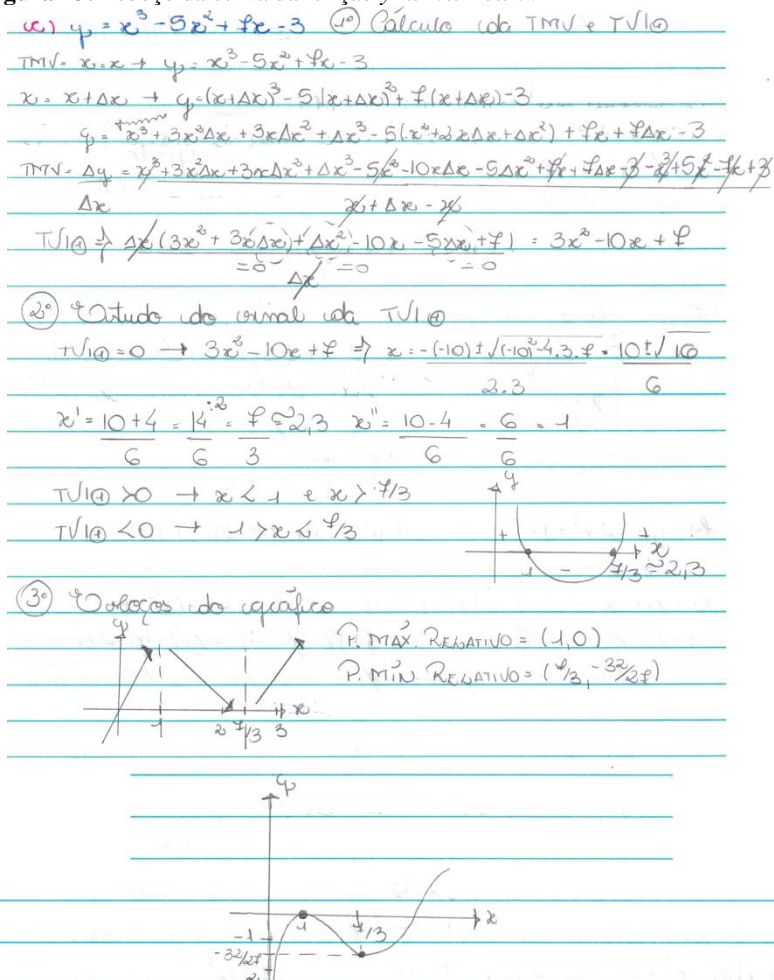 c) y = x³ - 5x² + 7x - 3 1º Cálculo da TMV e TVI
TMV = x = x → y = x³ - 5x² + 7x - 3
x = x + Δx → y = (x+Δx)³ - 5(x+Δx)² + 7(x+Δx) - 3
y = x³ + 3x²Δx + 3xΔx² + Δx³ - 5(x² + 2xΔx + Δx²) + 7x + 7Δx - 3
TMV = Δy/Δx = x³ + 3x²Δx + 3xΔx² + Δx³ - 5x² - 10xΔx - 5Δx² + 7x + 7Δx - 3 - x³ + 5x² - 7x + 3 / x + Δx - x
TVI ⇒ Δx (3x² + 3xΔx + Δx² - 10x - 5Δx + 7) / Δx = 3x² - 10x + 7
=0 =0 =0
2º Estudo do sinal da TVI
TVI = 0 → 3x² - 10x + 7 ⇒ x = -(-10) ± √(-10)² - 4.3.7 / 2.3 = 10 ± √16 / 6
x' = 10 + 4 / 6 = 14 / 6 :2 = 7 / 3 ≅ 2,3 x'' = 10 - 4 / 6 = 6 / 6 = 1
TVI > 0 → x < 1 e x > 7/3
TVI < 0 → 1 > x < 7/3
y
+ - +
x
1 7/3 ≅ 2,3
3º Esboços do gráfico
y
P. MÁX. RELATIVO = (1,0)
P. MÍN RELATIVO = (7/3, -32/27)
x
1 2 7/3 3
y
x
1 7/3
-1
-32/27